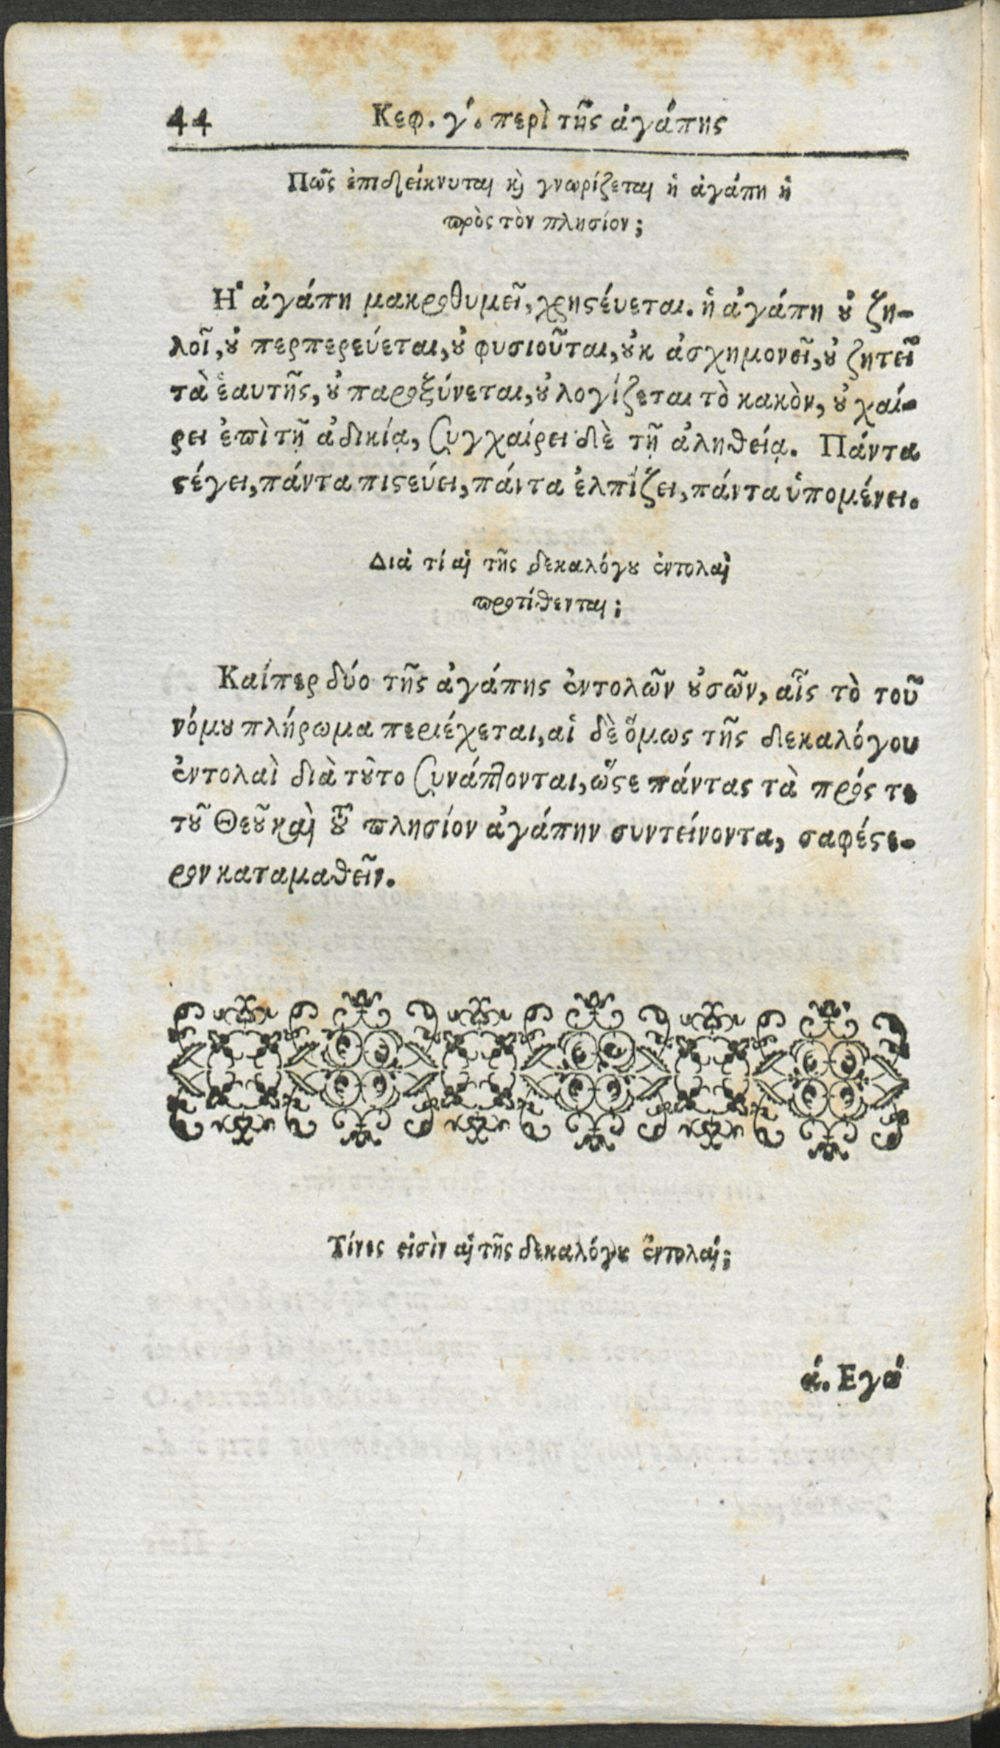 44 Κεφ. γ΄. περὶ τῆς ἀγάπης
Πῶς ἐπιδείκνυται κỳ γνωρίζεται ἡ ἀγάπη ἡ
πρὸς τὸν πλησίον;
Ἡ ἀγάπη μακροθυμεῖ, χρηϛέυεται. ἡ ἀγάπη ȣ̓ ζη-
λοῖ, ȣ̓ περπερεύεται, ȣ̓ φυσιοῦται, ȣ̓κ ἀσχημονεῖ, ȣ̓ ζητεῖ
τὰ ἑαυτῆς, ȣ̓ παροξύνεται, ȣ̓ λογίζεται τὸ κακὸν, ȣ̓ χαί-
ρει ἐπὶ τῇ ἀδικίᾳ, συγχαίρει δὲ τῇ ἀληθείᾳ. Πάντα
ϛέγει, πάντα πιϛεύει, πάντα ἐλπίζει, πάντα ὑπομένει.
Διὰ τί αἱ τῆς δεκαλόγȣ ἐντολαὶ
προτίθενται;
Καίπερ δύο τῆς ἀγάπης ἐντολῶν ȣ̓σῶν, αἷς τὸ τοῦ
νόμȣ πλήρωμα περιέχεται, αἱ δὲ ὅμως τῆς δεκαλόγου
ἐντολαὶ διὰ τȣ͂το συνάπτονται, ὥϛε πάντας τὰ πρός τε
τȣ͂ Θεȣ͂ καὶ τȣ͂ πλησίον ἀγάπην συντείνοντα, σαφέϛε-
ρον καταμαθεῖν.
Τίνες εἰσὶν αἱ τῆς δεκαλόγȣ ἐντολαί;
ά. Εγώ